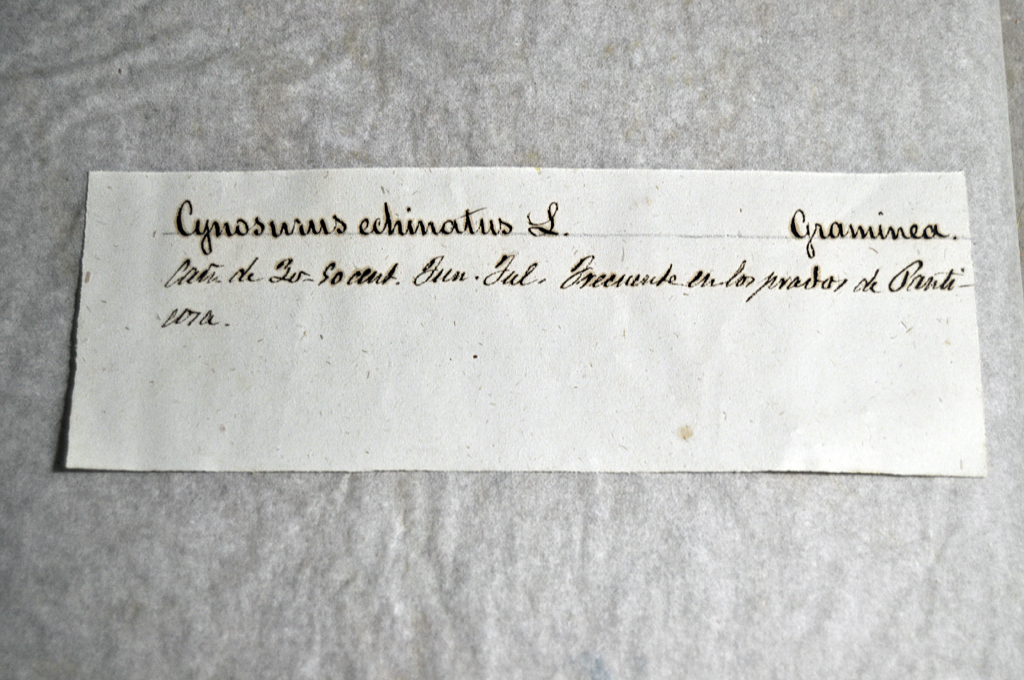 Cynosurus echinatus L. Graminea.
Cañ. de 30-50 cent. Jun. Jul. Frecuente en los prados de Panti-
cosa.